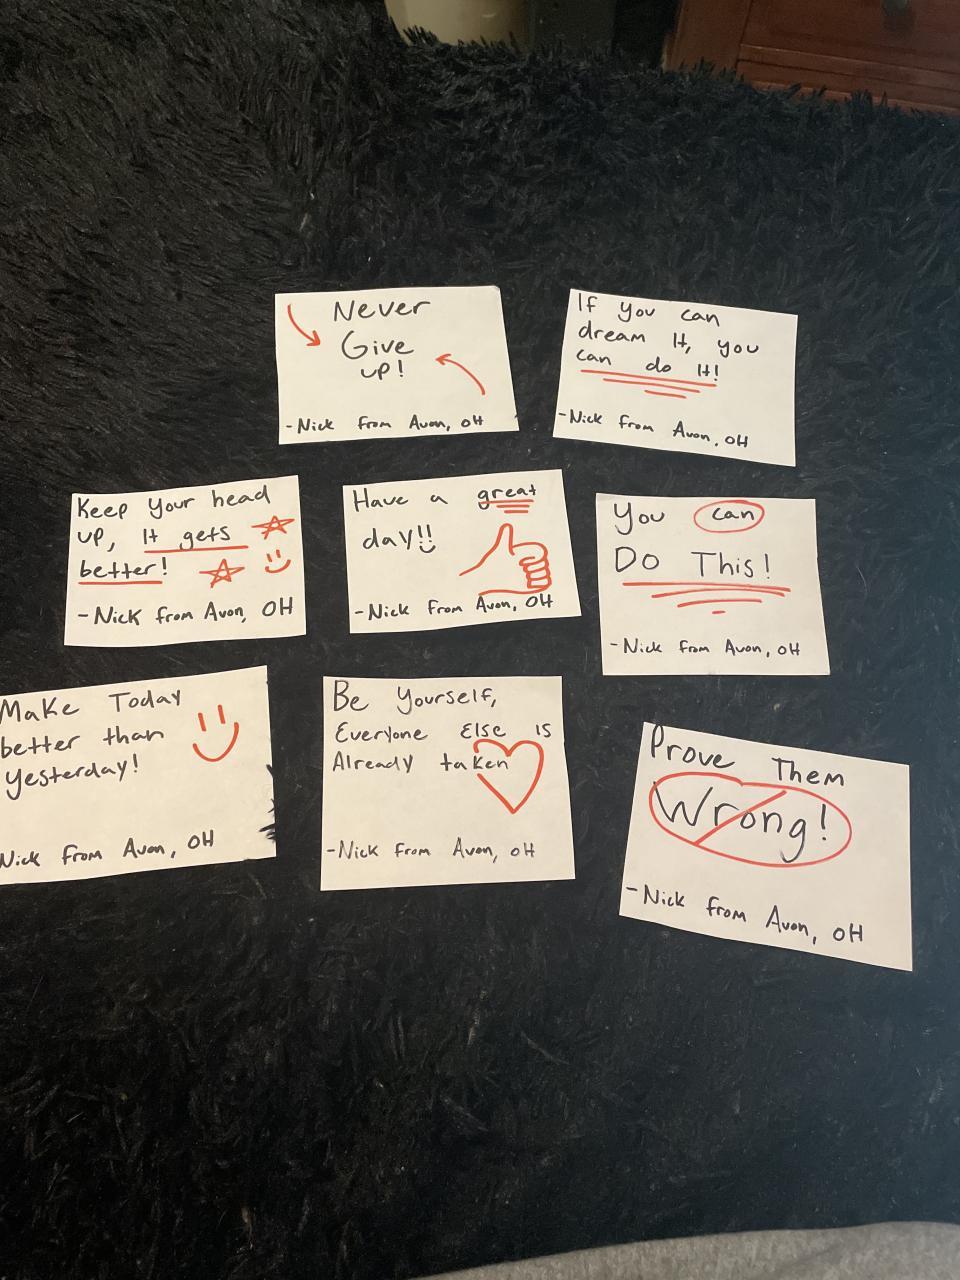 Never
Give
up!
-Nick from Avon, OH
If you can
dream It, you
can do It!
-Nick from Avon, OH
Keep Your head
up, It gets
better!
-Nick from Avon, OH
Have a great
day!!
-Nick from Avon, OH
You can
Do This!
-Nick from Avon, OH
Make Today
better than
yesterday!
Nick from Avon, OH
Be Yourself,
Everyone Else is
Already taken
-Nick from Avon, OH
Prove Them
Wrong!
-Nick from Avon, OH